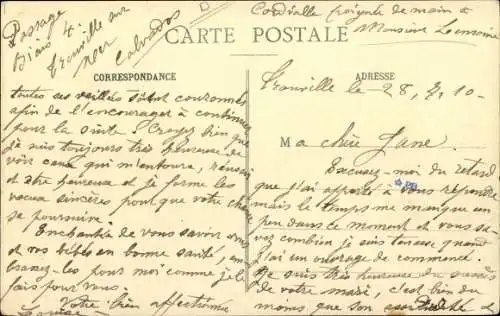 Passage
Biais 4.
Trouville sur
mer
Calvados
Cordialle poignée de main à
Monsieur
CARTE POSTALE
CORRESPONDANCE
ADRESSE
Trouville le 28, 10-
Ma chère Jane.
Excusez-moi du retard
que j'ai apporté à vous répondre
mais le temps me manque un
peu dans ce moment et vous sa-
vez combien je suis tenace quand
j'ai un ouvrage de commencé.
Je suis très heureuse du succès
de votre mari, c'est bien du
moins que son et
toutes ses veillées soient couronnées
afin de l'encourager à continuer
pour la suite. Croyez bien que
je suis toujours très heureuse de
voir ceux qui m'entoure, réussir
et être heureuse et je forme les
voeux sincères pour que votre chance
se poursuive.
Enchantée de vous savoir vous
et vos bébés en bonne santé, em-
brassez-les pour moi comme je le
fais pour vous.
Votre bien affectionnée